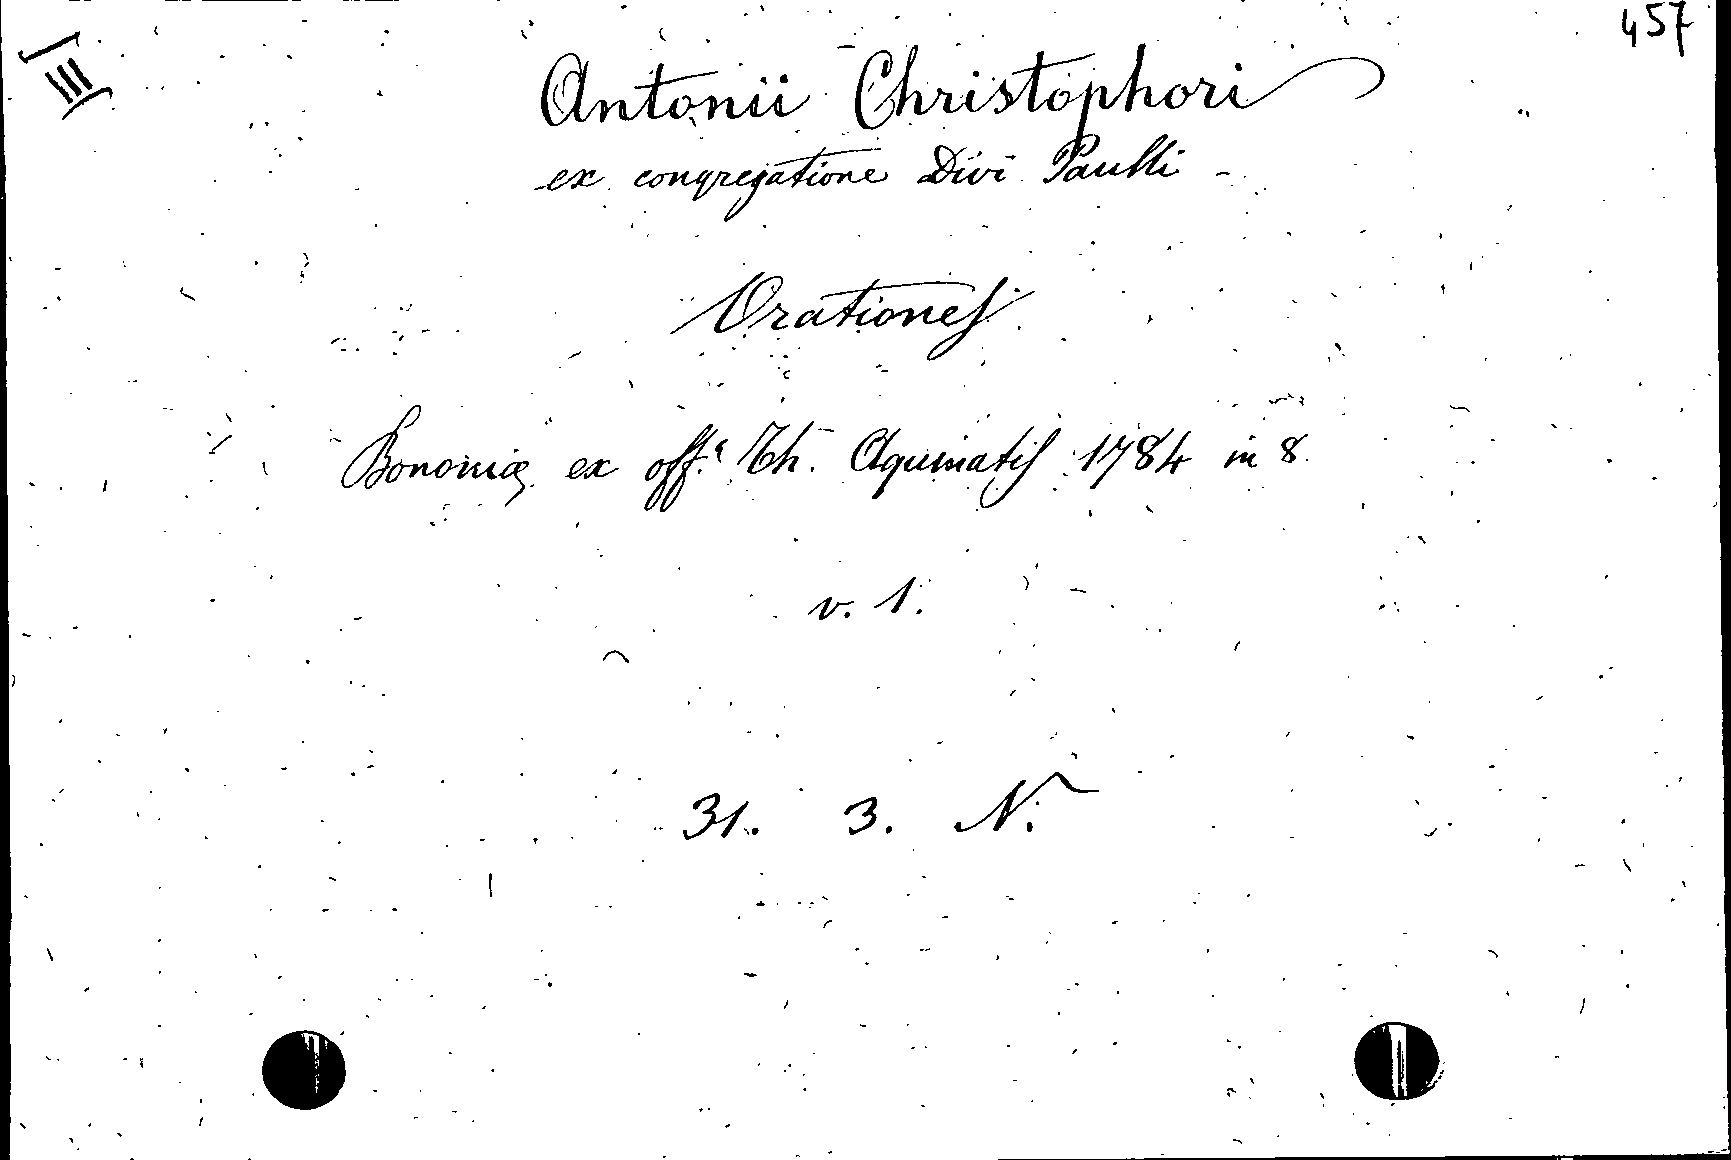 III
457
Antonii Christophori
ex congregatione Divi Paulli
Orationes
Bononiæ ex off.ª Th. Aquinatis 1784 in 8
v. 1.
31. 3. N.